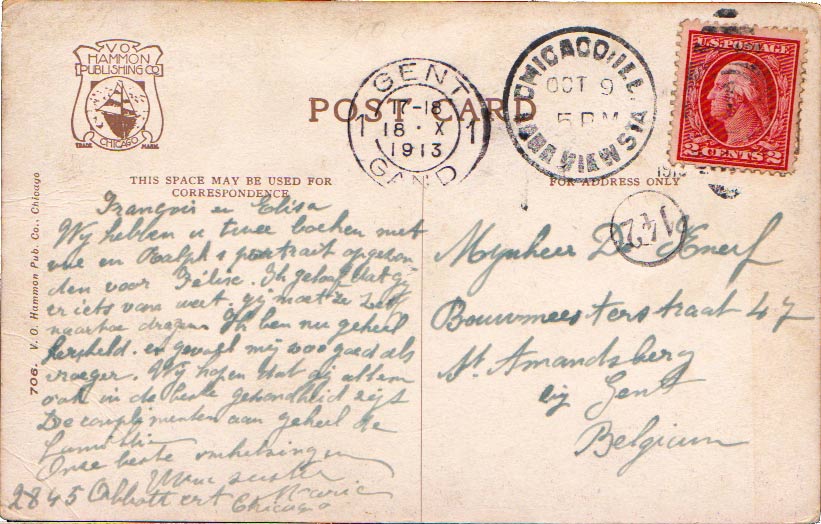 V.O.
HAMMON
PUBLISHING CO
CHICAGO
TRADE MARK
POST CARD
GENT
17-18
1 18 · X 1
1913
GAND
CHICAGO, ILL.
OCT 9
5 PM
1913
U.S. POSTAGE
2 CENTS 2
THIS SPACE MAY BE USED FOR
CORRESPONDENCE
FOR ADDRESS ONLY
706. V. O. Hammon Pub. Co., Chicago
François en Elisa
Wij hebben u twee boeken met
en Ralph's portrait opgezon
den voor Félise. Ik geloof dat gij
er iets voor gij moet ze zelf
naartoe dragen Ik ben nu geheel
hersteld. en gevoel mij zoo goed als
vroeger. Wij hopen dat gij allem
ook in de beste gezondheid zijt
De complimenten aan geheel de
familie
Onze beste omhelzingen
Uwe zuster
Marie
2845 Abbott crt Chicago
Mynheer D.
Bouwmeesterstraat 47
St Amandsberg
bij Gent
Belgium